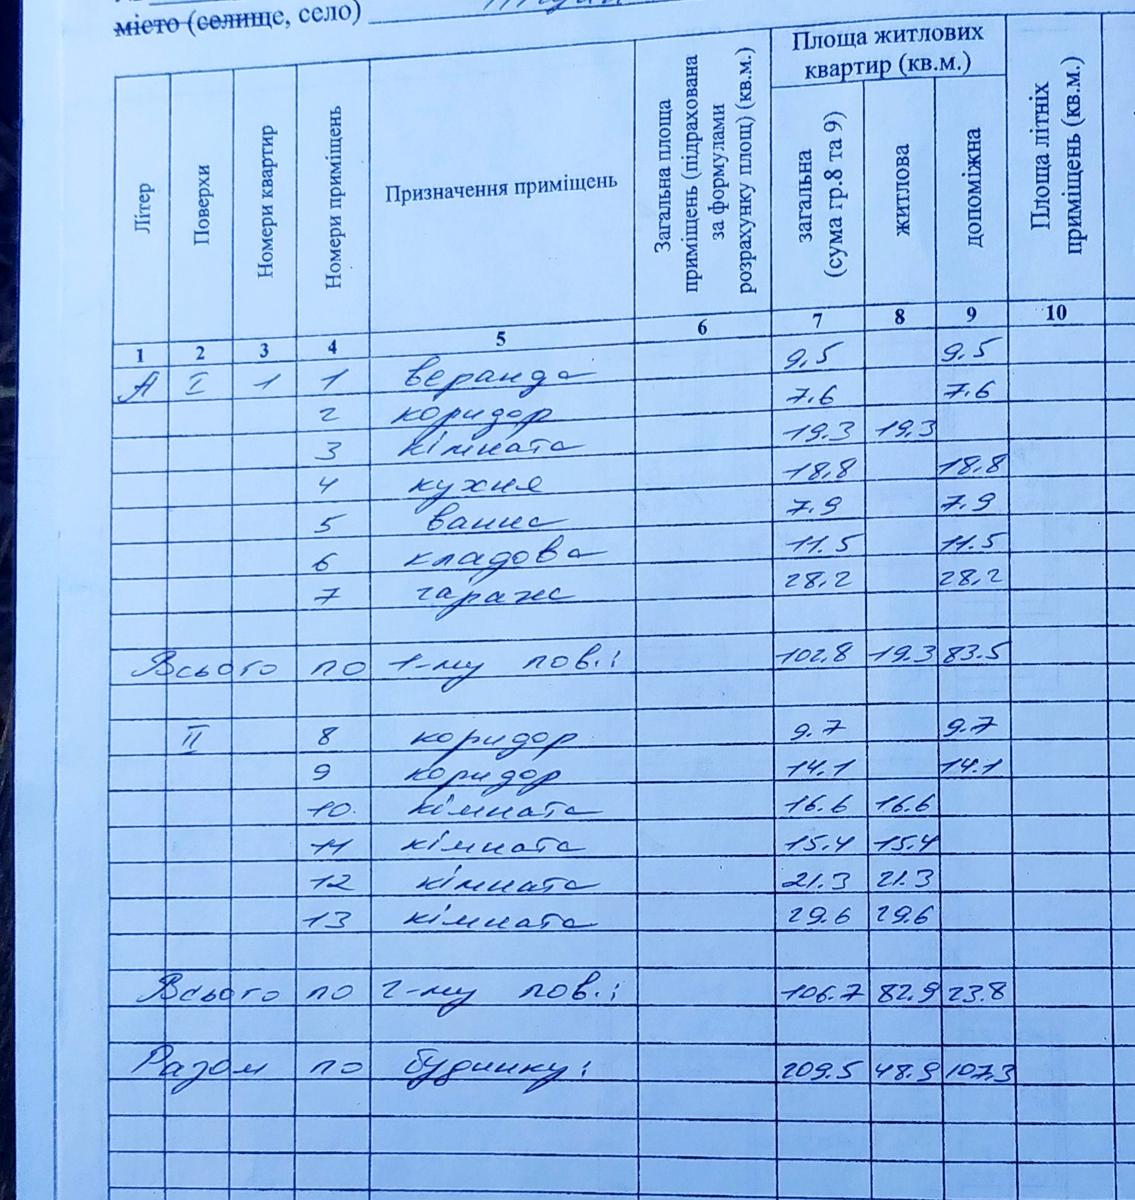 місто (селище, село)
Літер
Поверхи
Номери квартир
Номери приміщень
Призначення приміщень
Загальна площа
приміщень (підрахована
за формулами
розрахунку площ) (кв.м.)
Площа житлових
квартир (кв.м.)
загальна
(сума гр.8 та 9)
житлова
допоміжна
Площа літніх
приміщень (кв.м.)
1 2 3 4 5 6 7 8 9 10
А I 1 1 веранда 9,5 9,5
2 коридор 7.6 7.6
3 кімната 19.3 19.3
4 кухня 18,8 18.8
5 ванна 7.9 7.9
6 кладова 11.5 11.5
7 гараж 28,2 28,2
Всього по 1-му пов.: 102.8 19.3 83.5
II 8 коридор 9.7 9.7
9 коридор 14.1 14.1
10. кімната 16.6 16.6
11 кімната 15.4 15.4
12 кімната 21.3 21.3
13 кімната 29.6 29.6
Всього по 2-му пов.: 106.7 82.9 23.8
Разом по будинку: 209.5 48.9 107.3